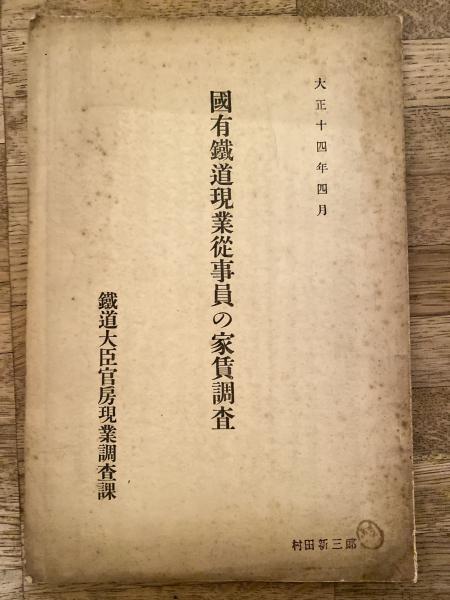 大正十四年四月
國有鐵道現業從事員の家賃調査
鐵道大臣官房現業調査課
村田新三郎